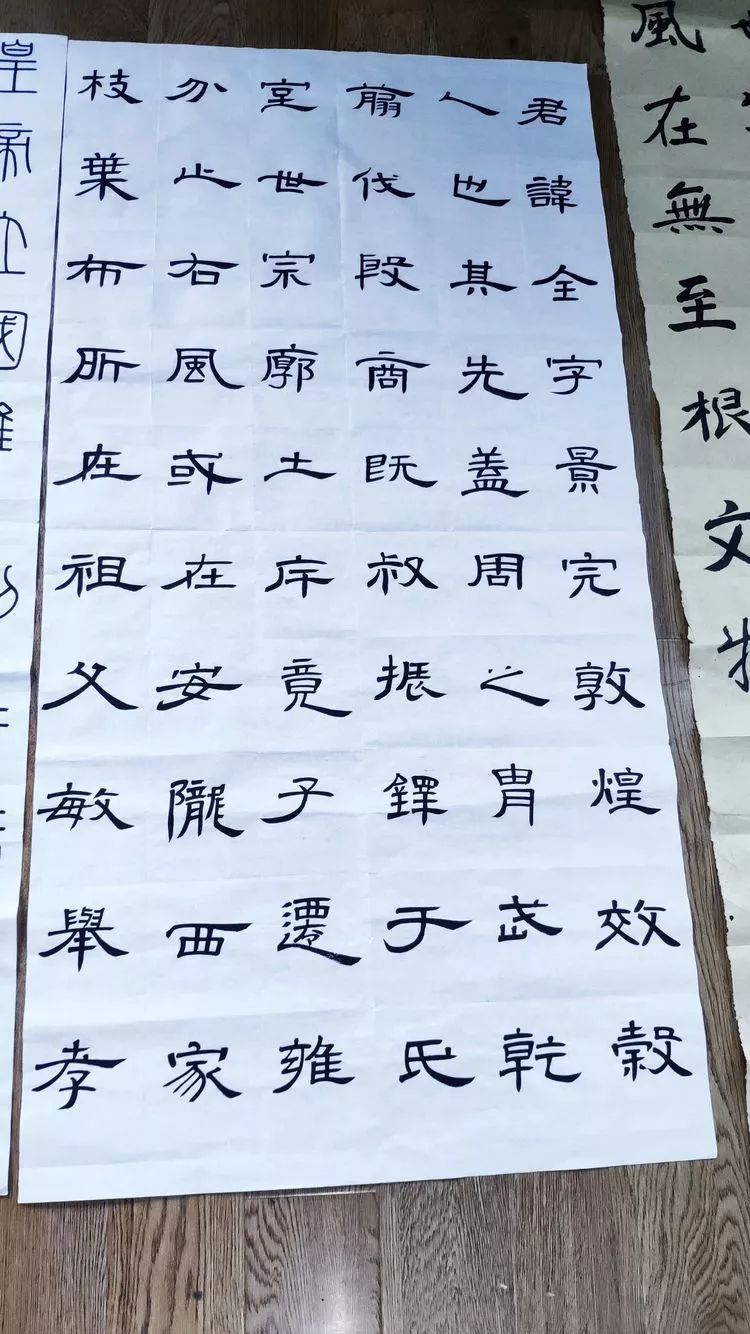 風在無至根文
君諱全字景完敦煌效穀
人也其先蓋周之胄武乾
翦伐殷商既叔振鐸于氏
室世宗廓土斥竟子遷雍
分止右風或在安隴西家
枝葉布所在祖父敏舉孝
皇帝立國維